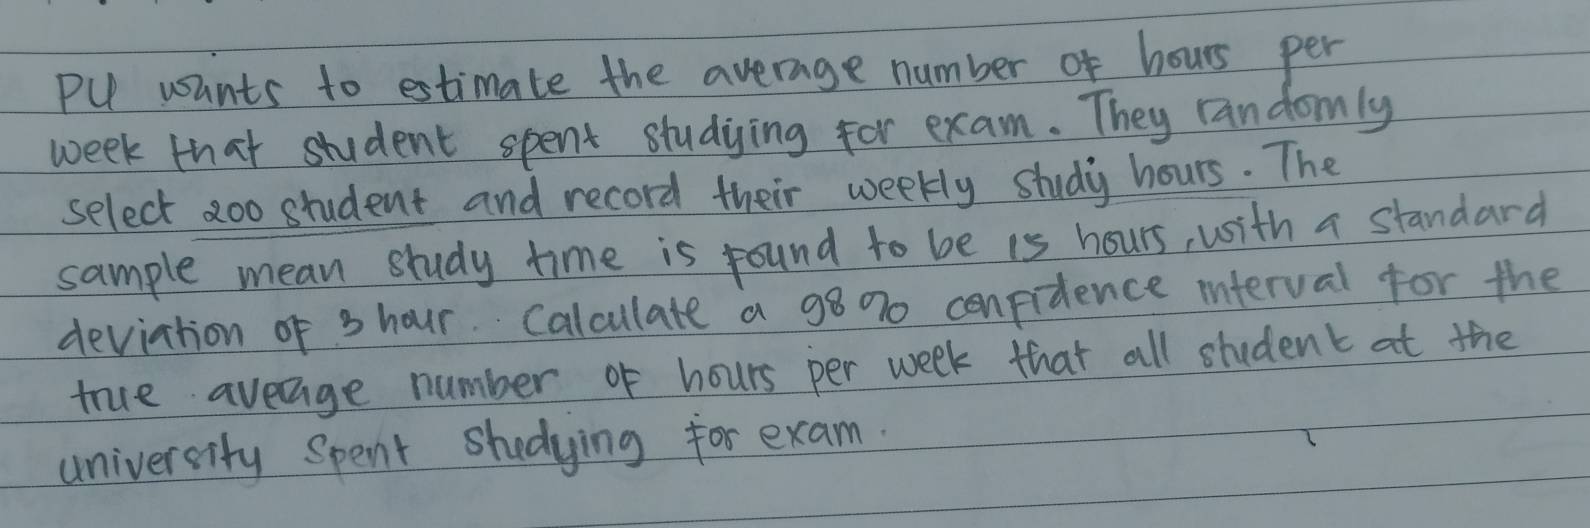 PU wants to estimate the average number of hours per
week that student spent studying for exam. They randomly
select 200 student and record their weekly study hours. The
sample mean study time is found to be 15 hours, with a standard
deviation of 3 hour. Calculate a 98% confidence interval for the
true average number of hours per week that all student at the
university spent studying for exam.